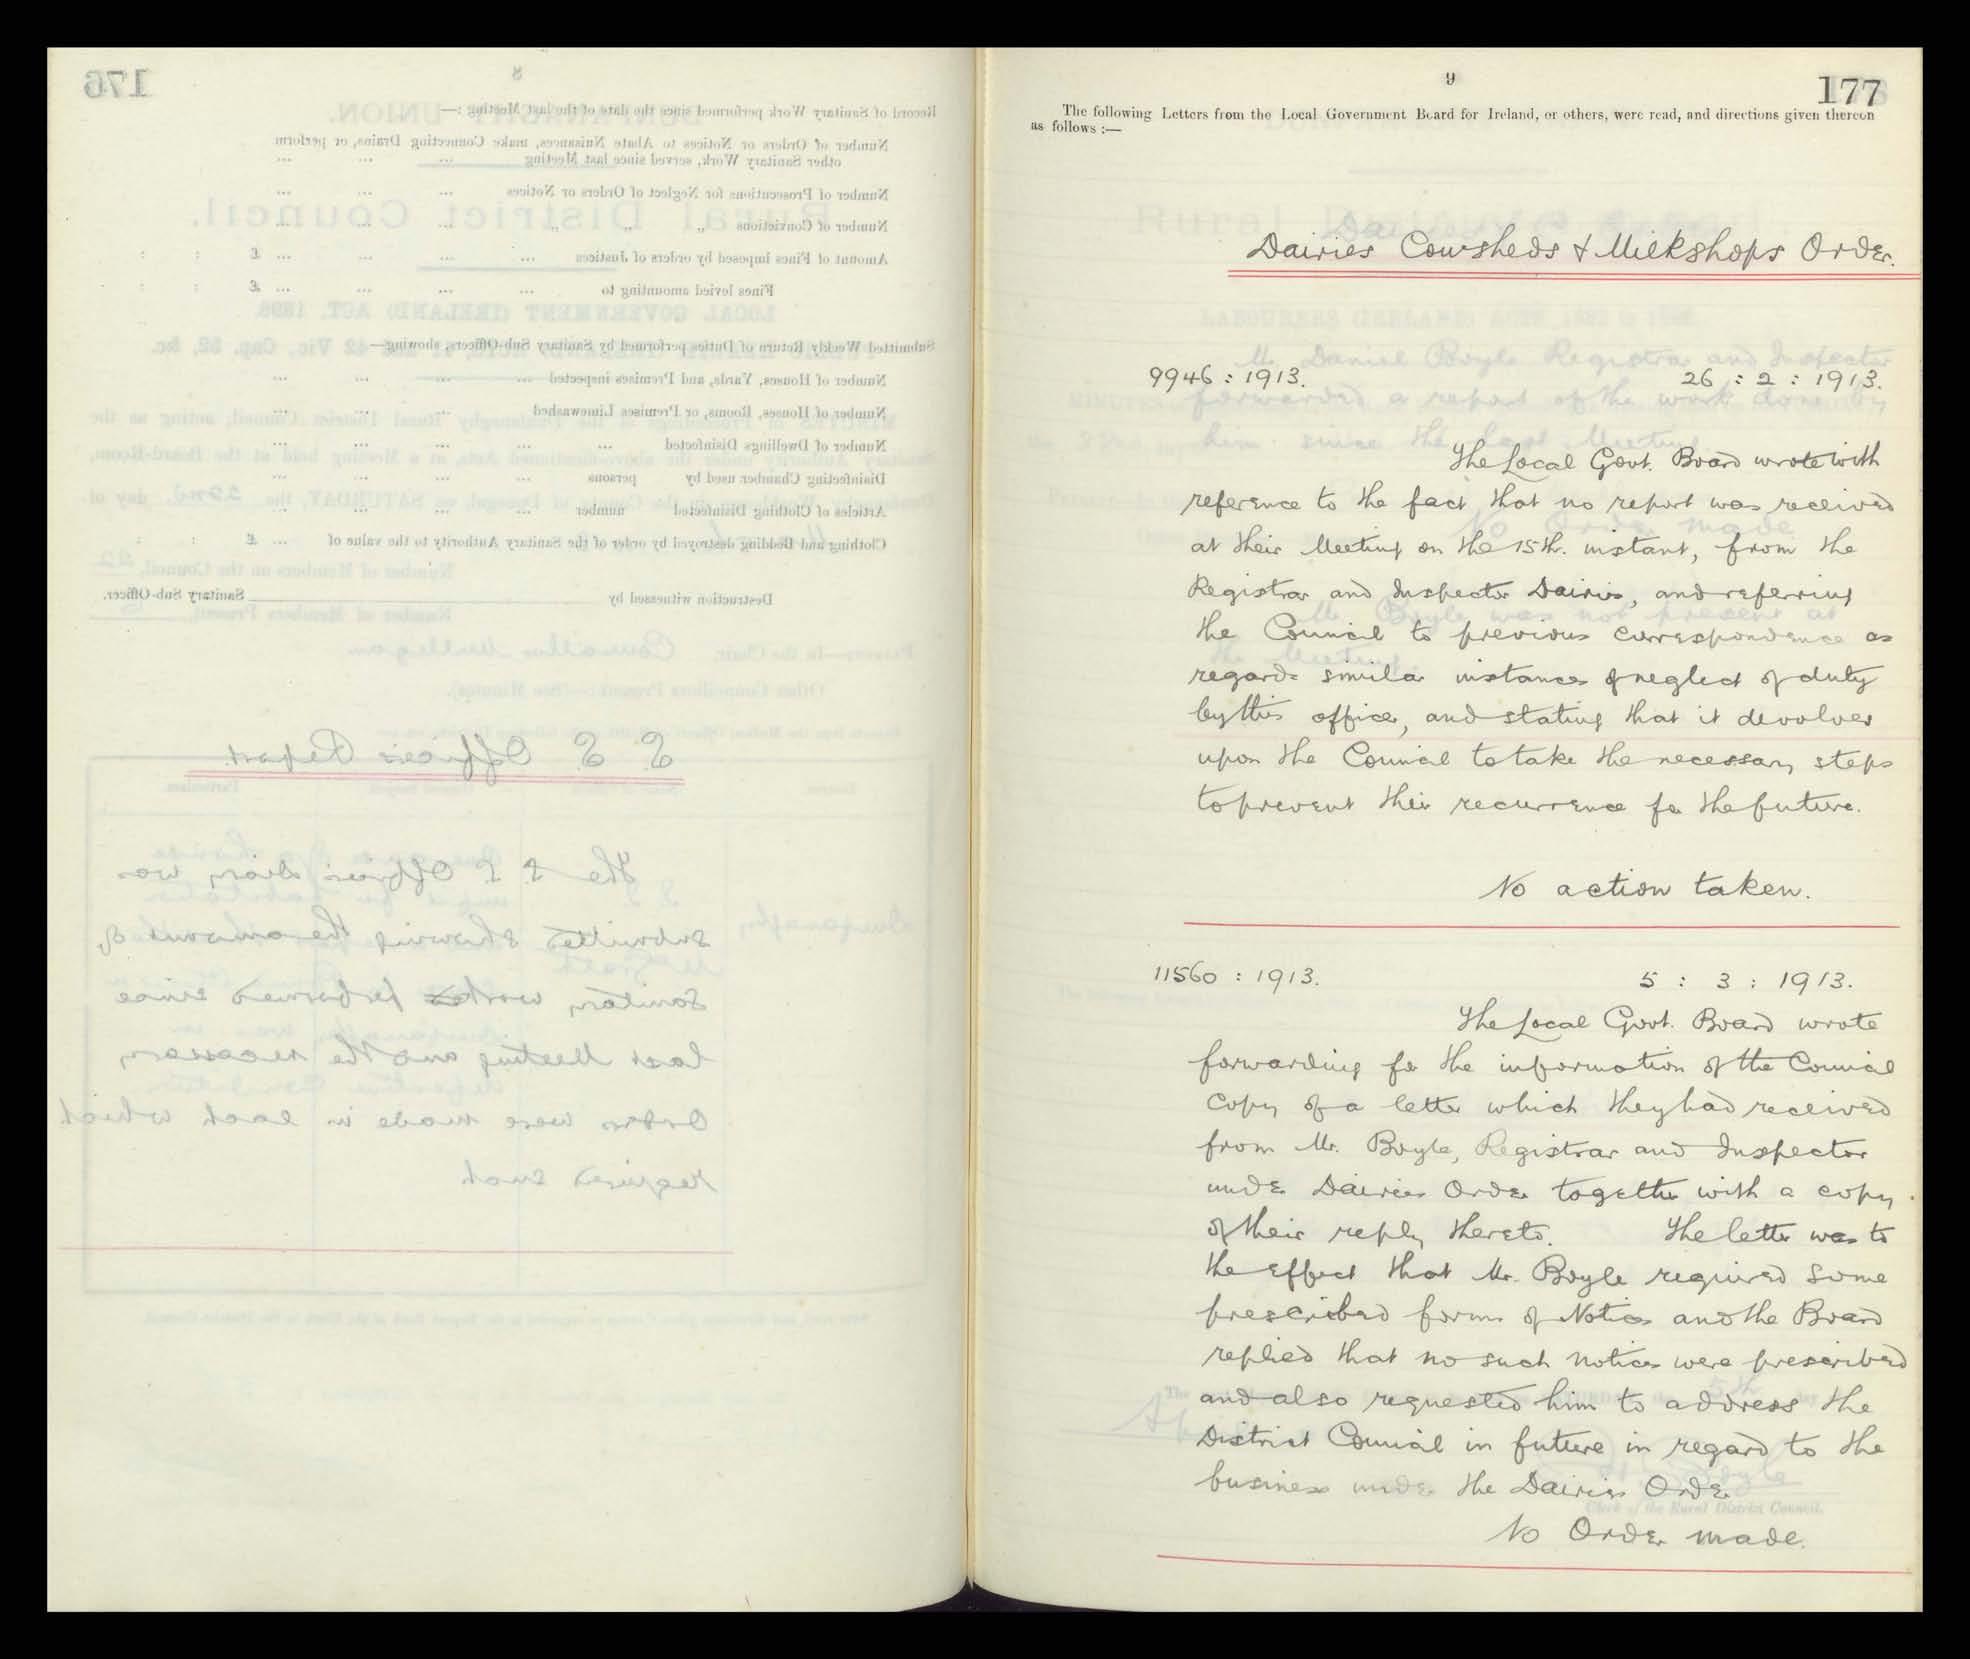 176
8
Record of Sanitary Work performed since the date of the last Meeting :—
Number of Orders or Notices to Abate Nuisances, make Connecting Drains, or perform
other Sanitary Work, served since last Meeting ... ... ...
Number of Prosecutions for Neglect of Orders or Notices ... ... ...
Number of Convictions „ „ „ ... ... ...
Amount of Fines imposed by orders of Justices ... ... ... £ : :
Fines levied amounting to ... ... ... £ : :
Submitted Weekly Return of Duties performed by Sanitary Sub-Officers, showing—
Number of Houses, Yards, and Premises inspected ... ... ...
Number of Houses, Rooms, or Premises Limewashed ... ... ...
Number of Dwellings Disinfected ... ... ... ...
Disinfecting Chamber used by persons ... ... ...
Articles of Clothing Disinfected number ... ... ...
Clothing and Bedding destroyed by order of the Sanitary Authority to the value of ... £ : :
Destruction witnessed by Sanitary Sub-Officer.
S. S. Officer's Report.
The S. S. Officer's diary was
submitted showing the amount of
Sanitary work performed since
last Meeting and the necessary
Orders were made in each which
required such
177
9
The following Letters from the Local Government Board for Ireland, or others, were read, and directions given thereon
as follows :—
Dairies Cowsheds & Milkshops Order.
9946 : 1913. 26 : 2 : 1913.
The Local Govt. Board wrote with
reference to the fact that no report was received
at their Meeting on the 15th. instant, from the
Registrar and Inspector Dairies, and referring
the Council to previous correspondence as
regards similar instances of neglect of duty
by this officer, and stating that it devolves
upon the Council to take the necessary steps
to prevent their recurrence for the future.
No action taken.
11560 : 1913. 5 : 3 : 1913.
The Local Govt. Board wrote
forwarding for the information of the Council
copy of a letter which they had received
from Mr. Boyle, Registrar and Inspector
under Dairies Order together with a copy
of their reply thereto. The letter was to
the effect that Mr. Boyle required some
prescribed forms of Notices and the Board
replied that no such notices were prescribed
and also requested him to address the
District Council in future in regard to the
business under the Dairies Order
No Order made.